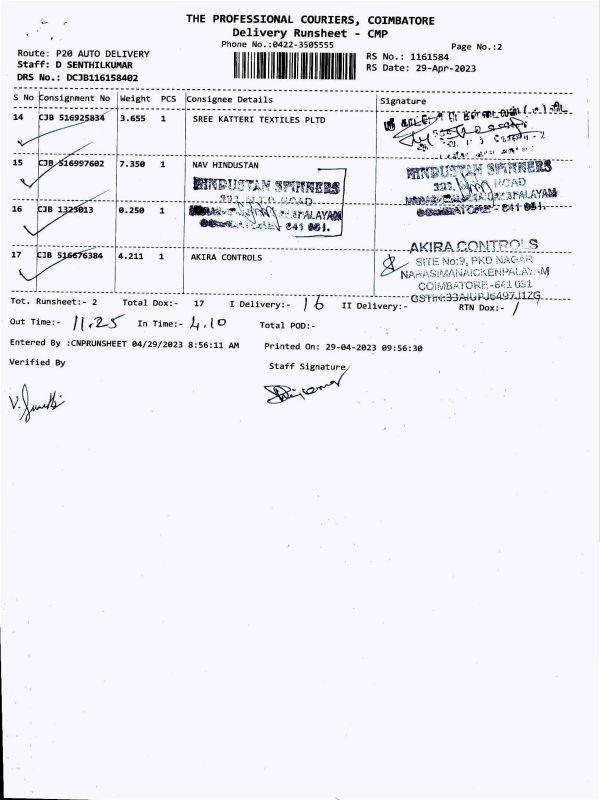 THE PROFESSIONAL COURIERS, COIMBATORE
Delivery Runsheet - CMP
Phone No.:0422-3505555
Page No.:2
Route: P20 AUTO DELIVERY
RS No.: 1161584
Staff: D SENTHILKUMAR
RS Date: 29-Apr-2023
DRS No.: DCJB116158402
S No Consignment No Weight PCS Consignee Details Signature
14 CJB 516925834 3.655 1 SREE KATTERI TEXTILES PLTD
15 CJB 516997602 7.350 1 NAV HINDUSTAN
HINDUSTAN SPINNERS
HINDUSTAN SPINNERS
16 CJB 1325013 0.250 1
641 031.
17 CJB 516676384 4.211 1 AKIRA CONTROLS
AKIRA CONTROLS
SITE No:9, PKD NAGAR
NARASIMANAICKENPALAYAM
COIMBATORE-641 031
GSTIN:33AIUPJ6497J1ZG
Tot. Runsheet:- 2 Total Dox:- 17 I Delivery:- 16 II Delivery:- RTN Dox:- 1
Out Time:- 11.25 In Time:- 4.10 Total POD:-
Entered By :CNPRUNSHEET 04/29/2023 8:56:11 AM Printed On: 29-04-2023 09:56:30
Verified By Staff Signature